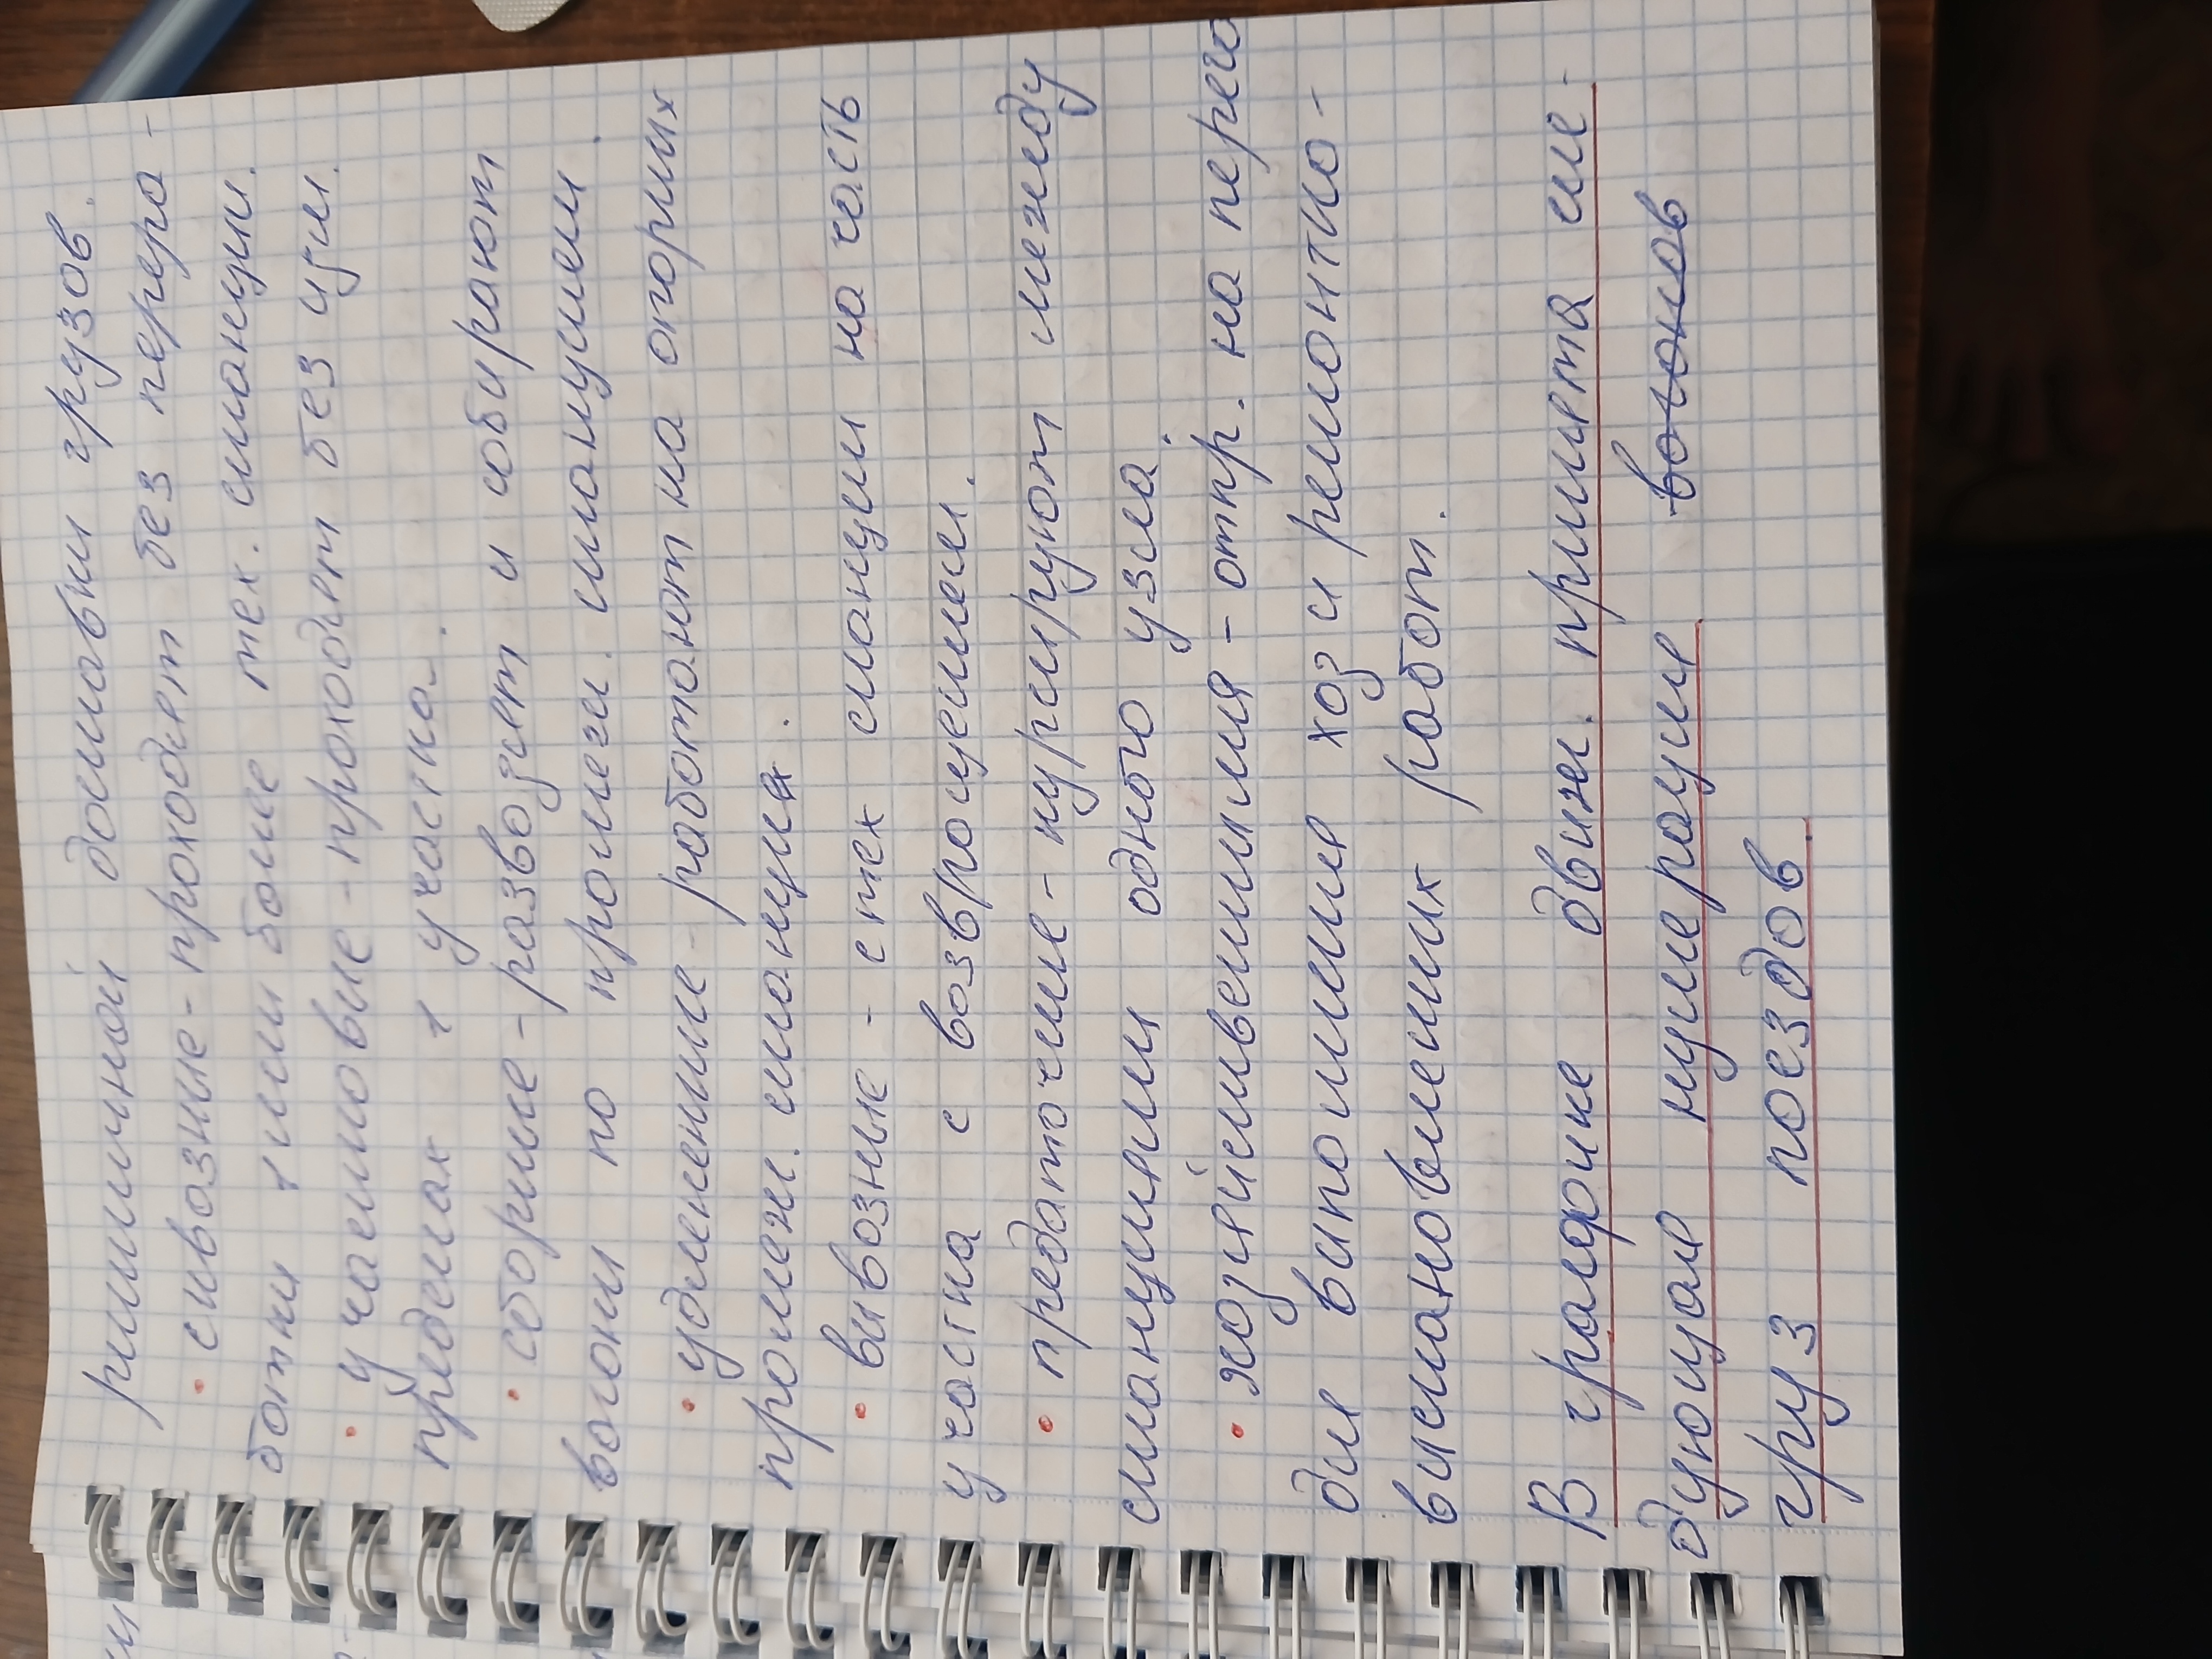 ритмичной доставки грузов.
• сквозные - проходят без перера-
ботки 1 или более тех. станции.
• участковые - проходят без изм.
пределах 1 участка.
• сборные - развозят и собирают
вагоны по промеж. станциям.
• удлиненные - работают на опорных
промеж. станциях.
• вывозные - с тех станции на часть
участка с возвращением.
• предаточные - курсируют между
станциями одного узла.
• хозяйственные - отпр. на перего
для выполнения хоз и ремонтно-
восстановленных работ.
В графике движ. принята сле-
дующая нумерация вагонов
груз поездов.